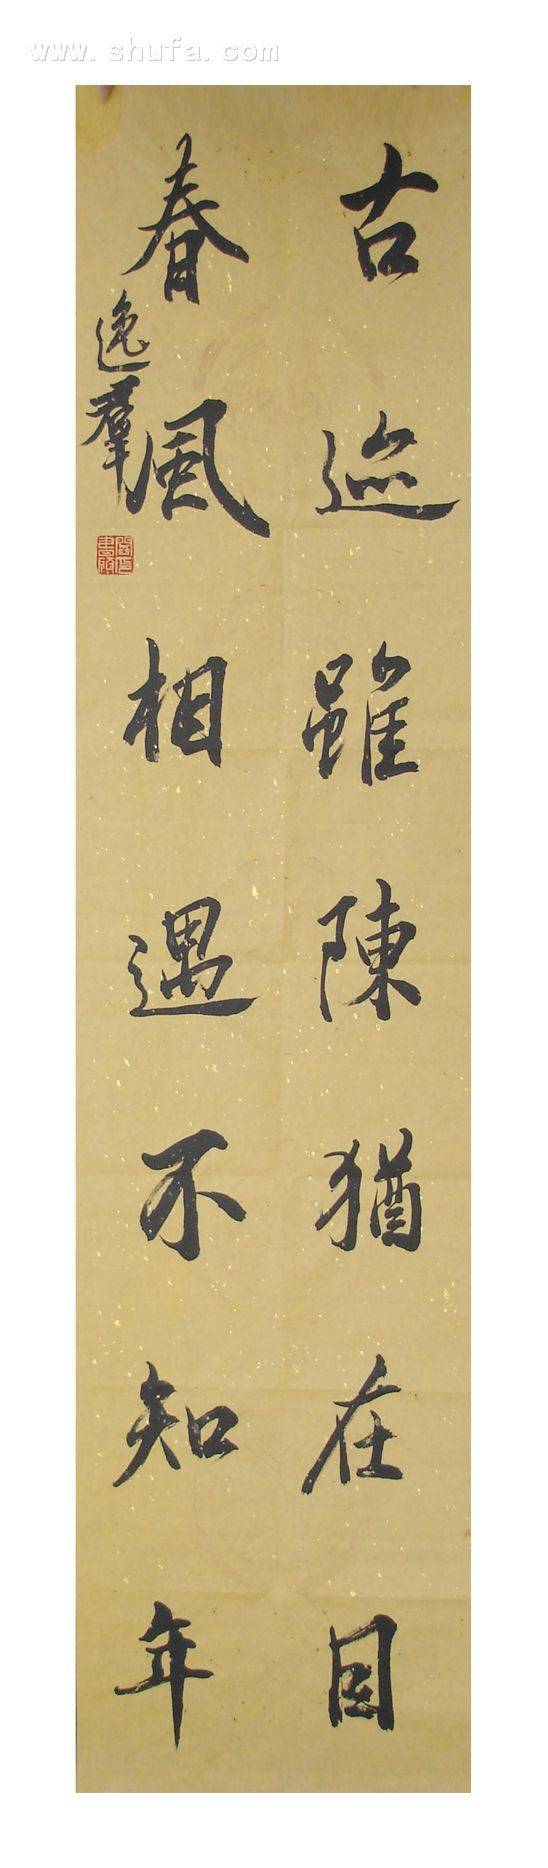 www.shufa.com
古迹雖陳猶在目
春風相遇不知年
逸羣